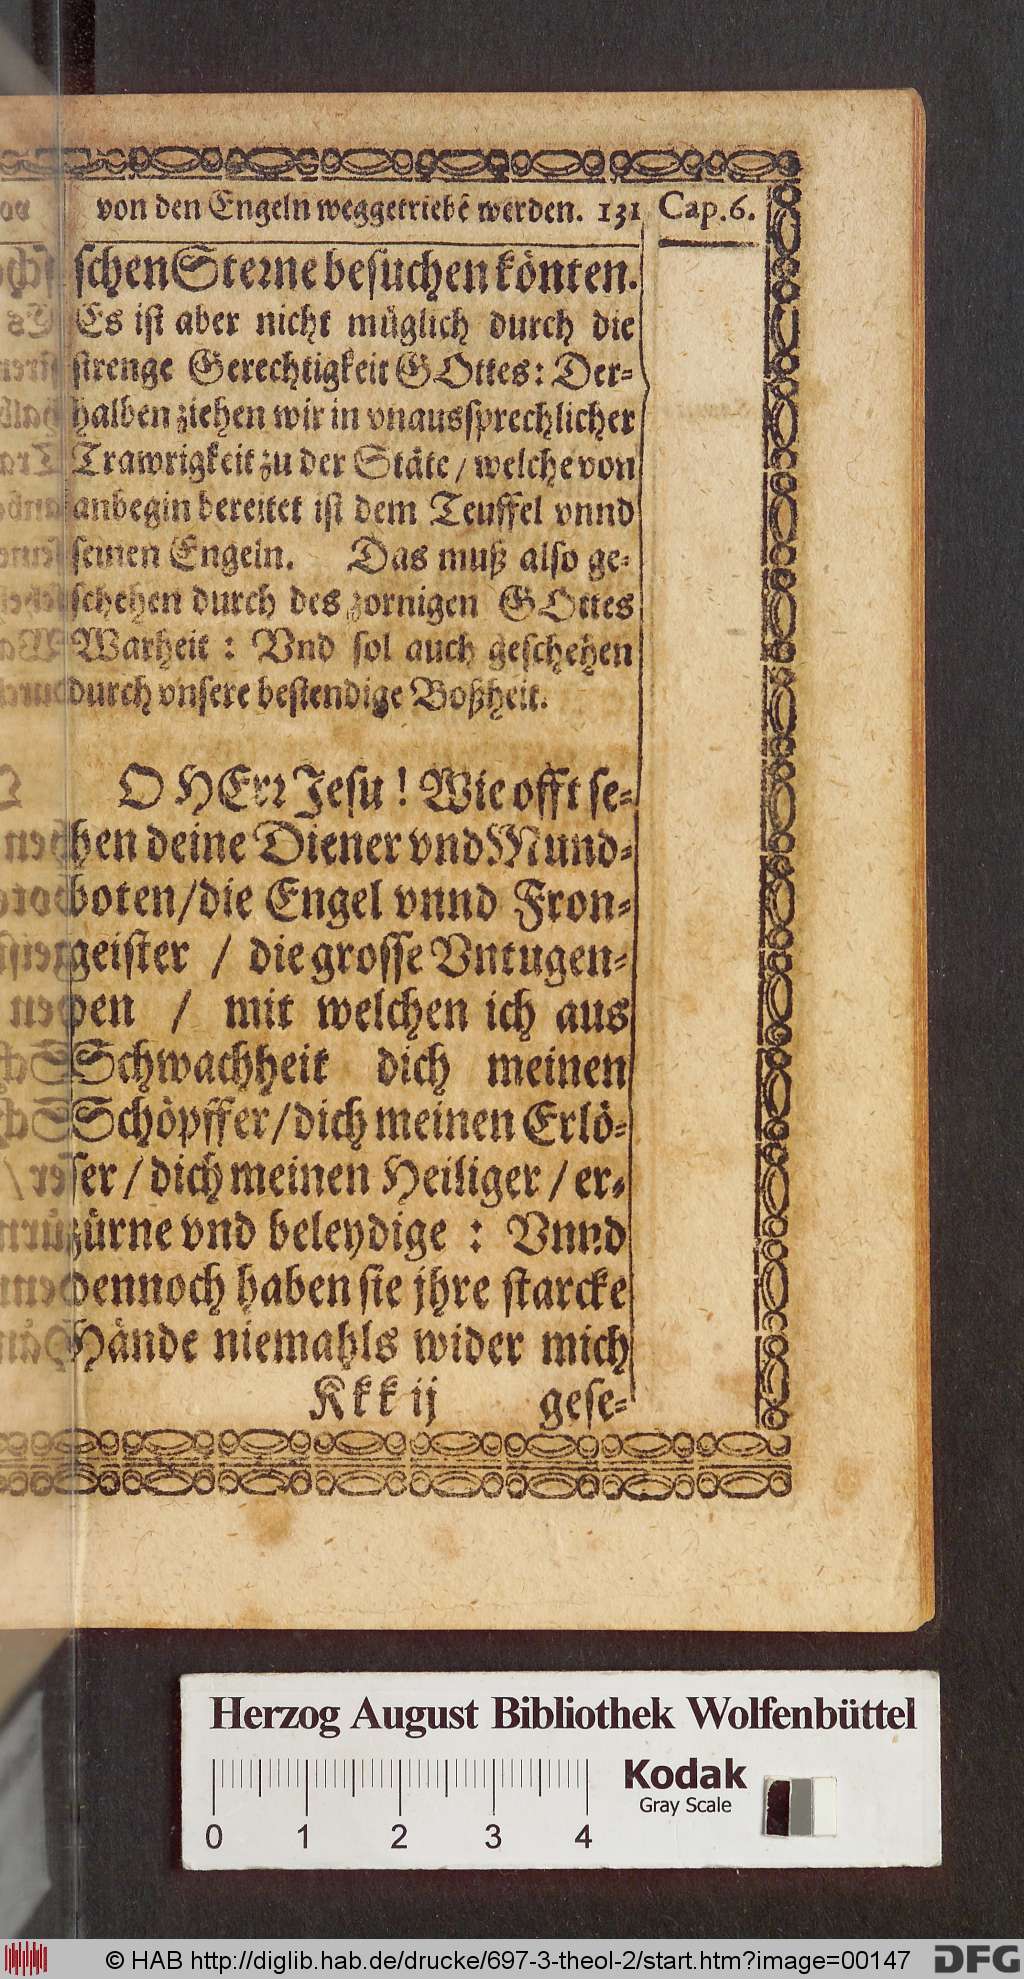 von den Engeln weggetriebẽ werden. 131 Cap.6.
schen Sterne besuchen könten.
Es ist aber nicht müglich durch die
strenge Gerechtigkeit GOttes: Der-
halben ziehen wir in vnaussprechlicher
Trawrigkeit zu der Stäte / welche von
anbegin bereitet ist dem Teuffel vnnd
seinen Engeln. Das muß also ge-
schehen durch des zornigen GOttes
Warheit : Vnd sol auch geschehen
durch vnsere bestendige Boßheit.
O HErr Jesu ! Wie offt se-
hen deine Diener vnd Mund-
boten/die Engel vnnd Fron-
geister / die grosse Vntugen-
den / mit welchen ich aus
Schwachheit dich meinen
Schöpffer/dich meinen Erlö-
ser / dich meinen Heiliger / er-
zürne vnd beleydige : Vnnd
dennoch haben sie jhre starcke
Hände niemahls wider mich
Kkk ij gese-
Herzog August Bibliothek Wolfenbüttel
Kodak
Gray Scale
0 1 2 3 4
© HAB http://diglib.hab.de/drucke/697-3-theol-2/start.htm?image=00147
DFG